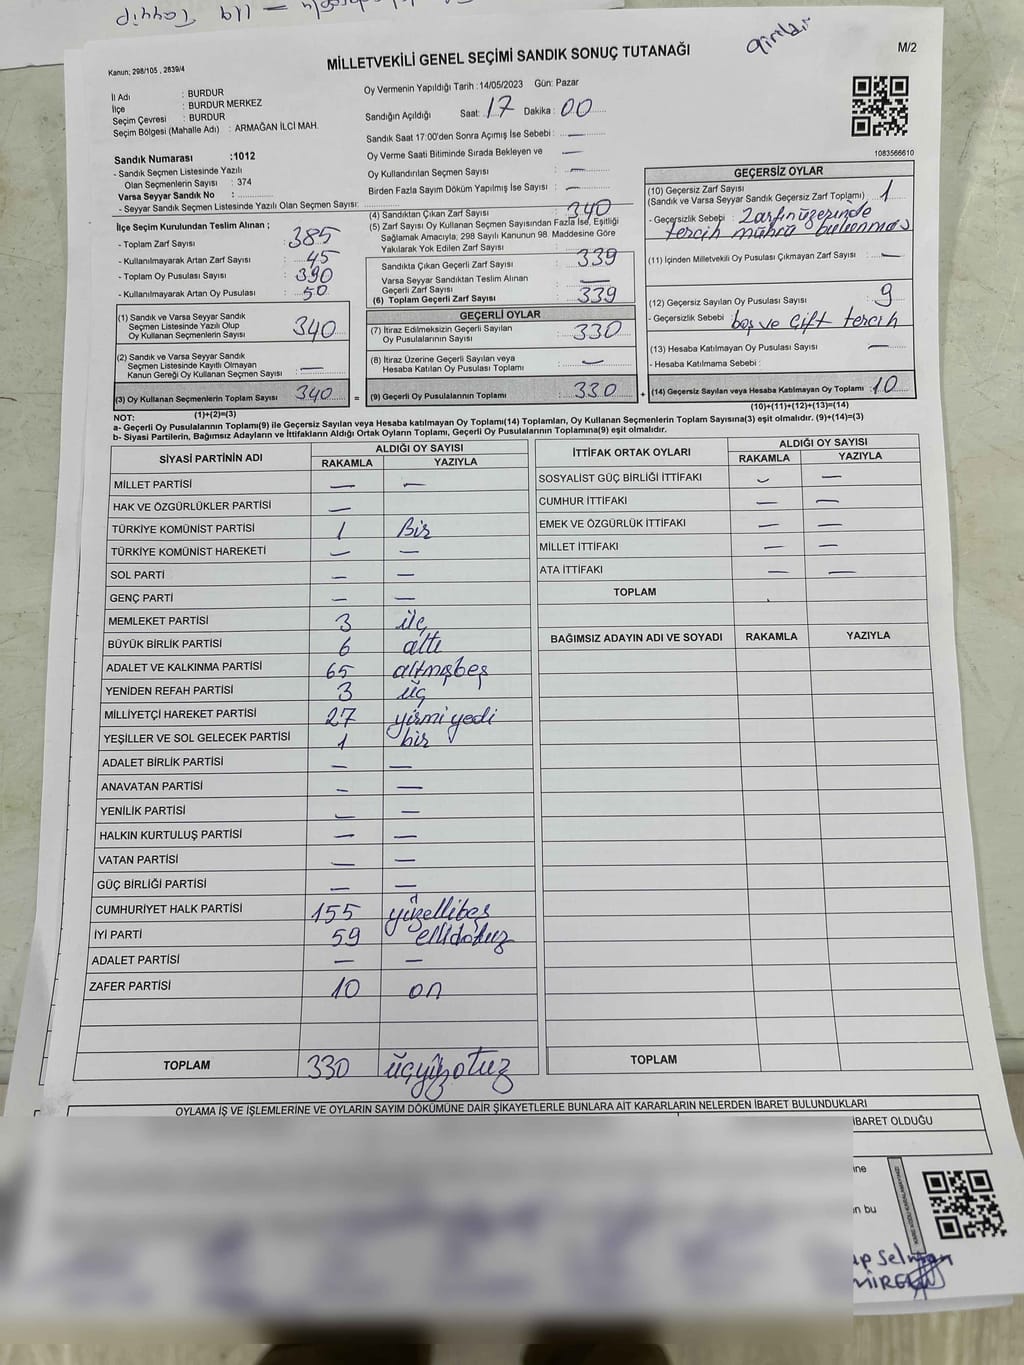 girildi
M/2
Kanun; 298/105 , 2839/4
MİLLETVEKİLİ GENEL SEÇİMİ SANDIK SONUÇ TUTANAĞI
İl Adı : BURDUR
İlçe : BURDUR MERKEZ
Seçim Çevresi : BURDUR
Seçim Bölgesi (Mahalle Adı) : ARMAĞAN İLCİ MAH.
Oy Vermenin Yapıldığı Tarih : 14/05/2023 Gün: Pazar
Sandığın Açıldığı Saat: 17 Dakika : 00
Sandık Saat 17:00'den Sonra Açımış İse Sebebi : —
Oy Verme Saati Bitiminde Sırada Bekleyen ve
Oy Kullandırılan Seçmen Sayısı : —
Birden Fazla Sayım Döküm Yapılmış İse Sayısı : —
1083566610
Sandık Numarası :1012
- Sandık Seçmen Listesinde Yazılı
Olan Seçmenlerin Sayısı : 374
Varsa Seyyar Sandık No :
- Seyyar Sandık Seçmen Listesinde Yazılı Olan Seçmen Sayısı:
İlçe Seçim Kurulundan Teslim Alınan ;
- Toplam Zarf Sayısı : 385
- Kullanılmayarak Artan Zarf Sayısı : 45
- Toplam Oy Pusulası Sayısı : 390
- Kullanılmayarak Artan Oy Pusulası : 50
(1) Sandık ve Varsa Seyyar Sandık
Seçmen Listesinde Yazılı Olup
Oy Kullanan Seçmenlerin Sayısı : 340
(2) Sandık ve Varsa Seyyar Sandık
Seçmen Listesinde Kayıtlı Olmayan
Kanun Gereği Oy Kullanan Seçmen Sayısı : —
(3) Oy Kullanan Seçmenlerin Toplam Sayısı : 340 =
(1)+(2)=(3)
(4) Sandıktan Çıkan Zarf Sayısı : 340
(5) Zarf Sayısı Oy Kullanan Seçmen Sayısından Fazla İse, Eşitliği
Sağlamak Amacıyla, 298 Sayılı Kanunun 98. Maddesine Göre
Yakılarak Yok Edilen Zarf Sayısı :
Sandıkta Çıkan Geçerli Zarf Sayısı : 339
Varsa Seyyar Sandıktan Teslim Alınan
Geçerli Zarf Sayısı : —
(6) Toplam Geçerli Zarf Sayısı : 339
GEÇERLİ OYLAR
(7) İtiraz Edilmeksizin Geçerli Sayılan
Oy Pusulalarının Sayısı : 330
(8) İtiraz Üzerine Geçerli Sayılan veya
Hesaba Katılan Oy Pusulası Toplamı : —
(9) Geçerli Oy Pusulalarının Toplamı : 330 +
GEÇERSİZ OYLAR
(10) Geçersiz Zarf Sayısı
(Sandık ve Varsa Seyyar Sandık Geçersiz Zarf Toplamı) : 1
- Geçersizlik Sebebi : Zarfın üzerinde
tercih mührü bulunması
(11) İçinden Milletvekili Oy Pusulası Çıkmayan Zarf Sayısı : —
(12) Geçersiz Sayılan Oy Pusulası Sayısı : 9
- Geçersizlik Sebebi : boş ve çift tercih
(13) Hesaba Katılmayan Oy Pusulası Sayısı : —
- Hesaba Katılmama Sebebi :
(14) Geçersiz Sayılan veya Hesaba Katılmayan Oy Toplamı : 10
(10)+(11)+(12)+(13)=(14)
NOT:
a- Geçerli Oy Pusulalarının Toplamı(9) ile Geçersiz Sayılan veya Hesaba katılmayan Oy Toplamı(14) Toplamları, Oy Kullanan Seçmenlerin Toplam Sayısına(3) eşit olmalıdır. (9)+(14)=(3)
b- Siyasi Partilerin, Bağımsız Adayların ve İttifakların Aldığı Ortak Oyların Toplamı, Geçerli Oy Pusulalarının Toplamına(9) eşit olmalıdır.
SİYASİ PARTİNİN ADI ALDIĞI OY SAYISI
RAKAMLA YAZIYLA
MİLLET PARTİSİ — —
HAK VE ÖZGÜRLÜKLER PARTİSİ —
TÜRKİYE KOMÜNİST PARTİSİ 1 Bir
TÜRKİYE KOMÜNİST HAREKETİ — —
SOL PARTİ — —
GENÇ PARTİ — —
MEMLEKET PARTİSİ 3 üç
BÜYÜK BİRLİK PARTİSİ 6 altı
ADALET VE KALKINMA PARTİSİ 65 altmışbeş
YENİDEN REFAH PARTİSİ 3 üç
MİLLİYETÇİ HAREKET PARTİSİ 27 yirmi yedi
YEŞİLLER VE SOL GELECEK PARTİSİ 1 bir
ADALET BİRLİK PARTİSİ — —
ANAVATAN PARTİSİ — —
YENİLİK PARTİSİ — —
HALKIN KURTULUŞ PARTİSİ — —
VATAN PARTİSİ — —
GÜÇ BİRLİĞİ PARTİSİ — —
CUMHURİYET HALK PARTİSİ 155 yüzellibeş
İYİ PARTİ 59 ellidokuz
ADALET PARTİSİ — —
ZAFER PARTİSİ 10 on
TOPLAM 330 üçyüzotuz
İTTİFAK ORTAK OYLARI ALDIĞI OY SAYISI
RAKAMLA YAZIYLA
SOSYALİST GÜÇ BİRLİĞİ İTTİFAKI — —
CUMHUR İTTİFAKI — —
EMEK VE ÖZGÜRLÜK İTTİFAKI — —
MİLLET İTTİFAKI — —
ATA İTTİFAKI — —
TOPLAM
BAĞIMSIZ ADAYIN ADI VE SOYADI RAKAMLA YAZIYLA
TOPLAM
OYLAMA İŞ VE İŞLEMLERİNE VE OYLARIN SAYIM DÖKÜMÜNE DAİR ŞİKAYETLERLE BUNLARA AİT KARARLARIN NELERDEN İBARET BULUNDUKLARI
İBARET OLDUĞU